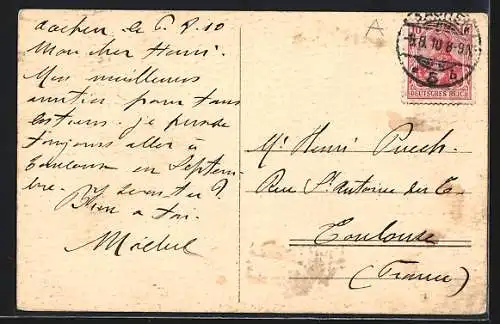 Aachen le 6. 8. 10
Mon cher Henri.
Mes meilleures
amitiés pour tous
les tiens. je pense
toujours aller à
Toulouse en Septem-
bre. Y seras tu ?
Bien à toi.
Michel
A
8.10 8-9N
DEUTSCHES REICH
Mr Henri Puech.
Rue St Antoine du T.
Toulouse
(France)